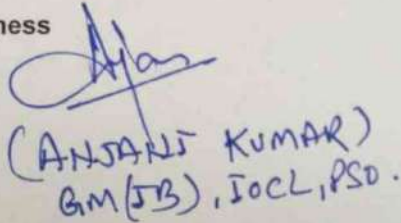 ness
(ANJANI KUMAR)
GM(IB), IOCL, PSO.